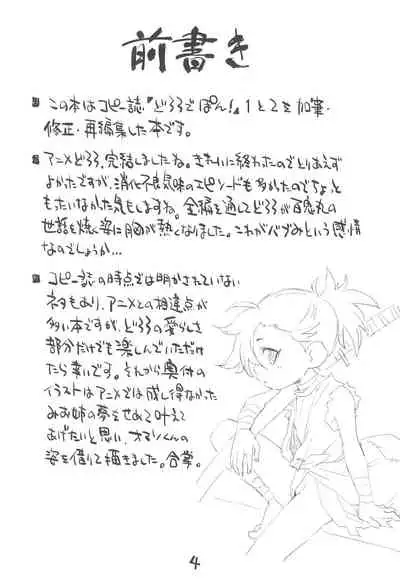 前書き
この本はコピー誌『どろろでぽん!』1と2を加筆・
修正・再編集した本です。
アニメどろろ、完結しましたね。きれいに終わったのでとりあえず
よかったですが、消化不良気味のエピソードも多かったのでちょっと
もったいなかった気もしますね。全編を通してどろろが百鬼丸の
世話を焼く姿に胸が熱くなりました。これがバブみという感情
なのでしょうか…
コピー誌の時点では明かされていない
ネタもあり、アニメとの相違点が
多い本ですが、どろろの愛らしさ
部分だけでも楽しんでいただけ
たら幸いです。それから奥付の
イラストはアニメでは成し得なかった
みお姉の夢をせめて叶えて
あげたいと思い、オマソくんの
姿を借りて描きました。合掌。
4